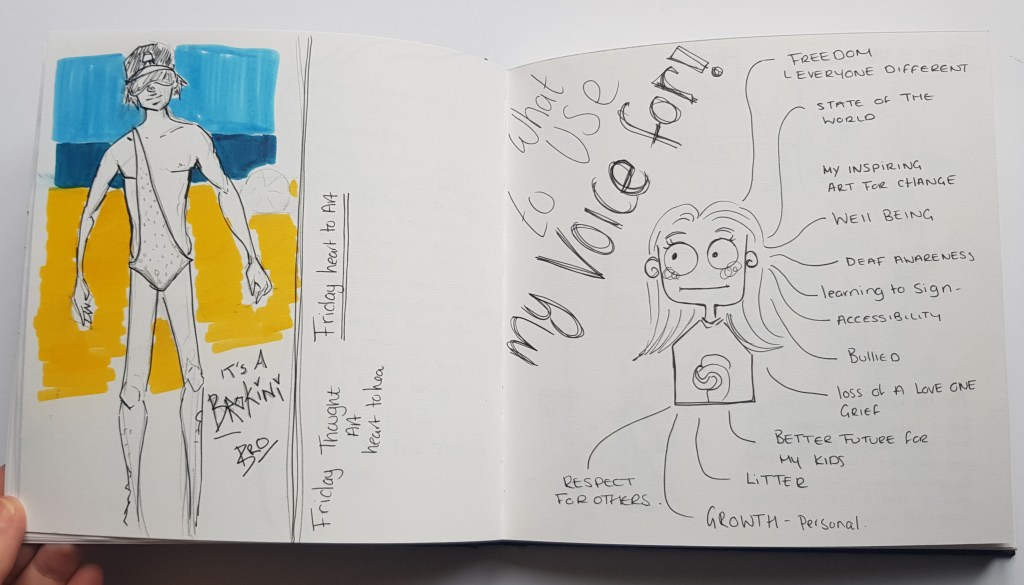 IT'S A
BROKINI
BRO
Friday heart to Art
Friday Thought
Art
heart to hea
what
to use
my Voice for!!
FREEDOM
EVERYONE DIFFERENT
STATE OF THE
WORLD
MY INSPIRING
ART FOR CHANGE
WEll BEING
DEAF AWARENESS
learning to Sign -
ACCESSIBILITY
Bullied
loss of A LOVE ONE
GRIEF
BETTER FUTURE FOR
MY KIDS
LITTER
GROWTH - Personal.
RESPECT
FOR OTHERS.